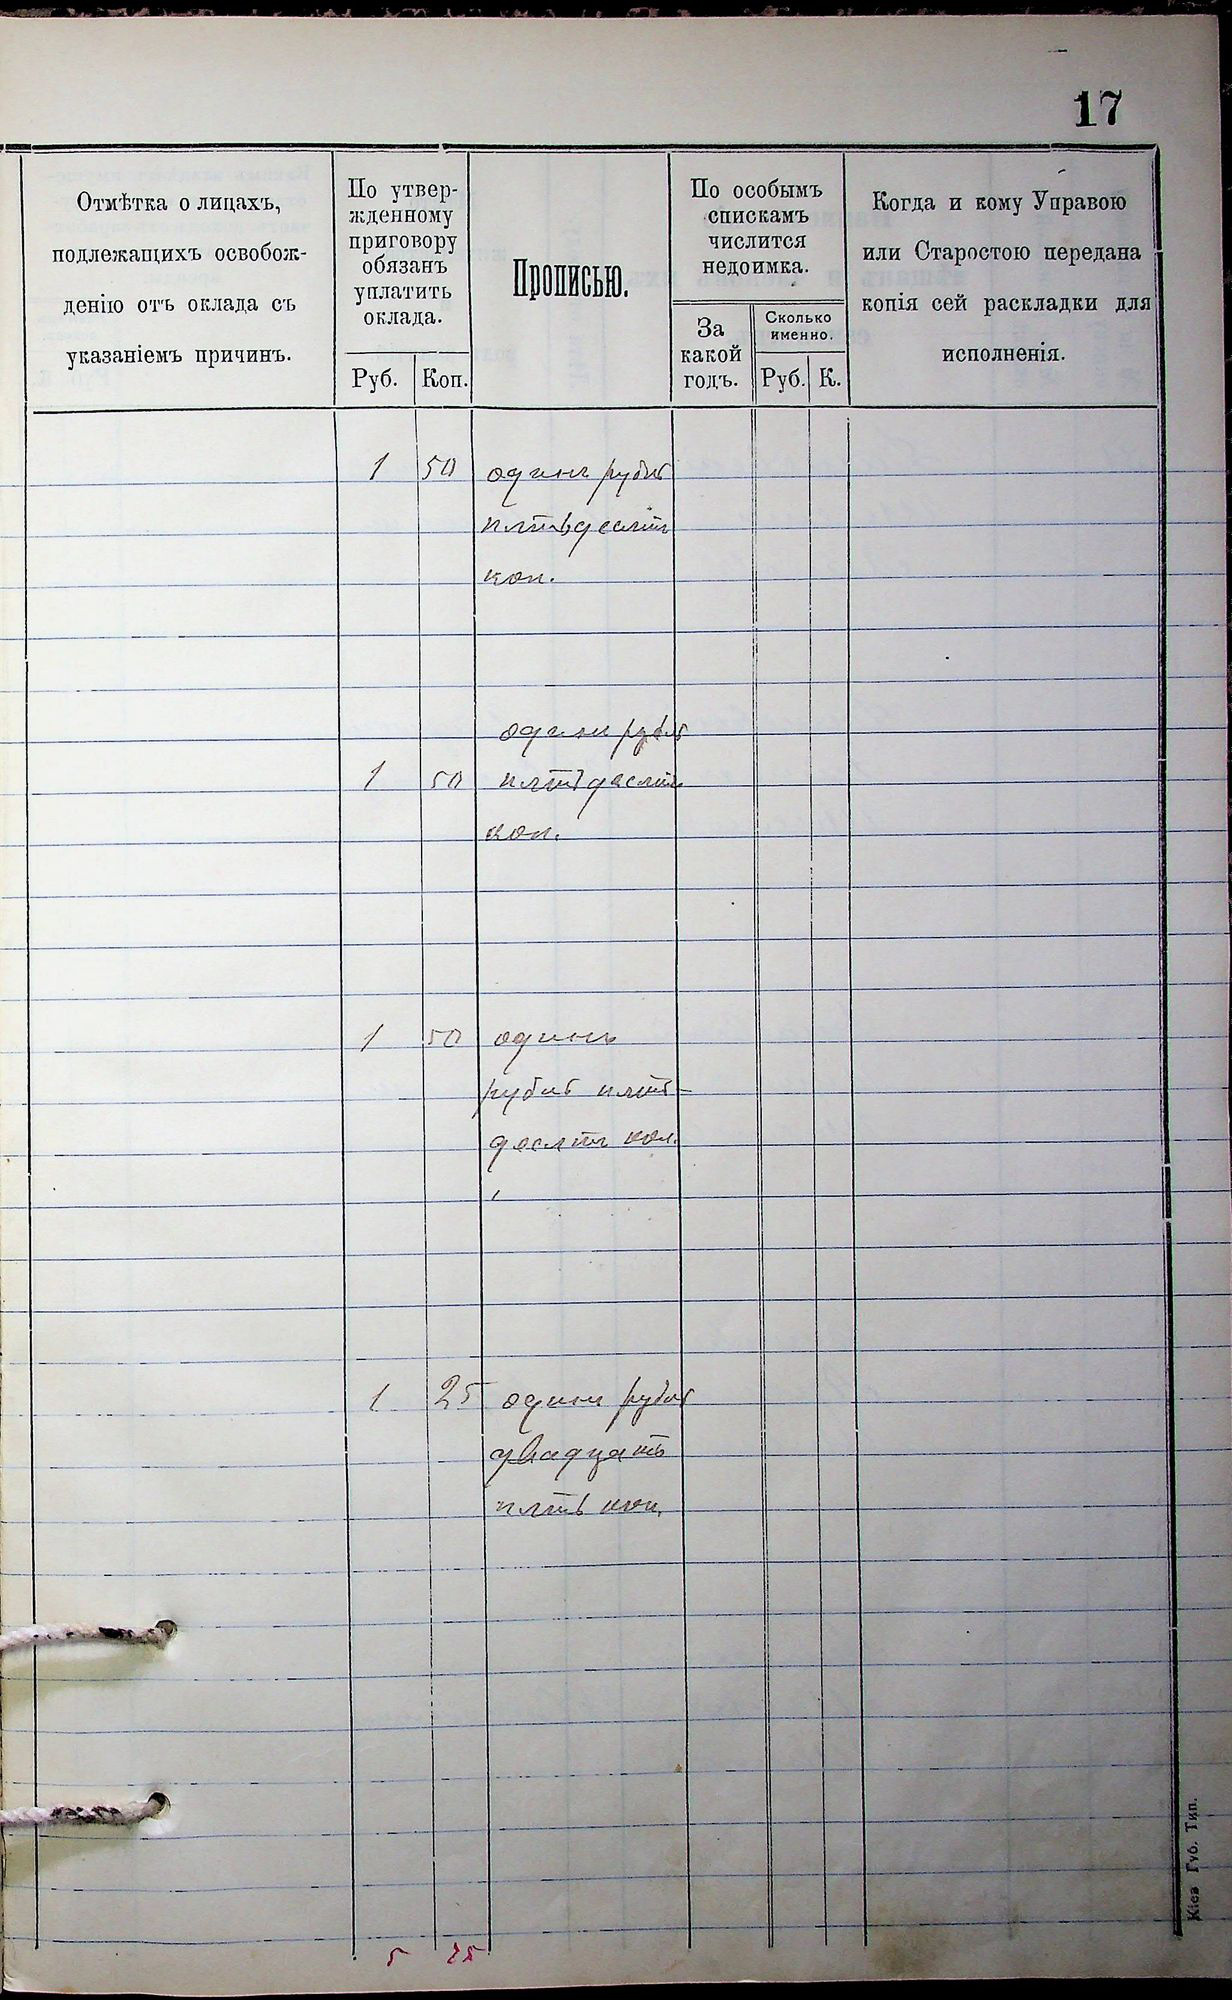 17
Отмѣтка о лицахъ,
подлежащихъ освобож-
денію отъ оклада съ
указаніемъ причинъ.
По утвер-
жденному
приговору
обязанъ
уплатить
оклада.
Руб. Коп.
Прописью.
По особымъ
спискамъ
числится
недоимка.
За
какой
годъ.
Сколько
именно.
Руб. К.
Когда и кому Управою
или Старостою передана
копія сей раскладки для
исполненія.
1 50 одинъ рубль
пятьдесятъ
коп.
одинъ рубль
1 50 пятьдесятъ
коп.
1 50 одинъ
рубль пять-
десятъ коп.
1 25 одинъ рубль
двадцать
пять коп.
5 75
Кіев Губ. Тип.